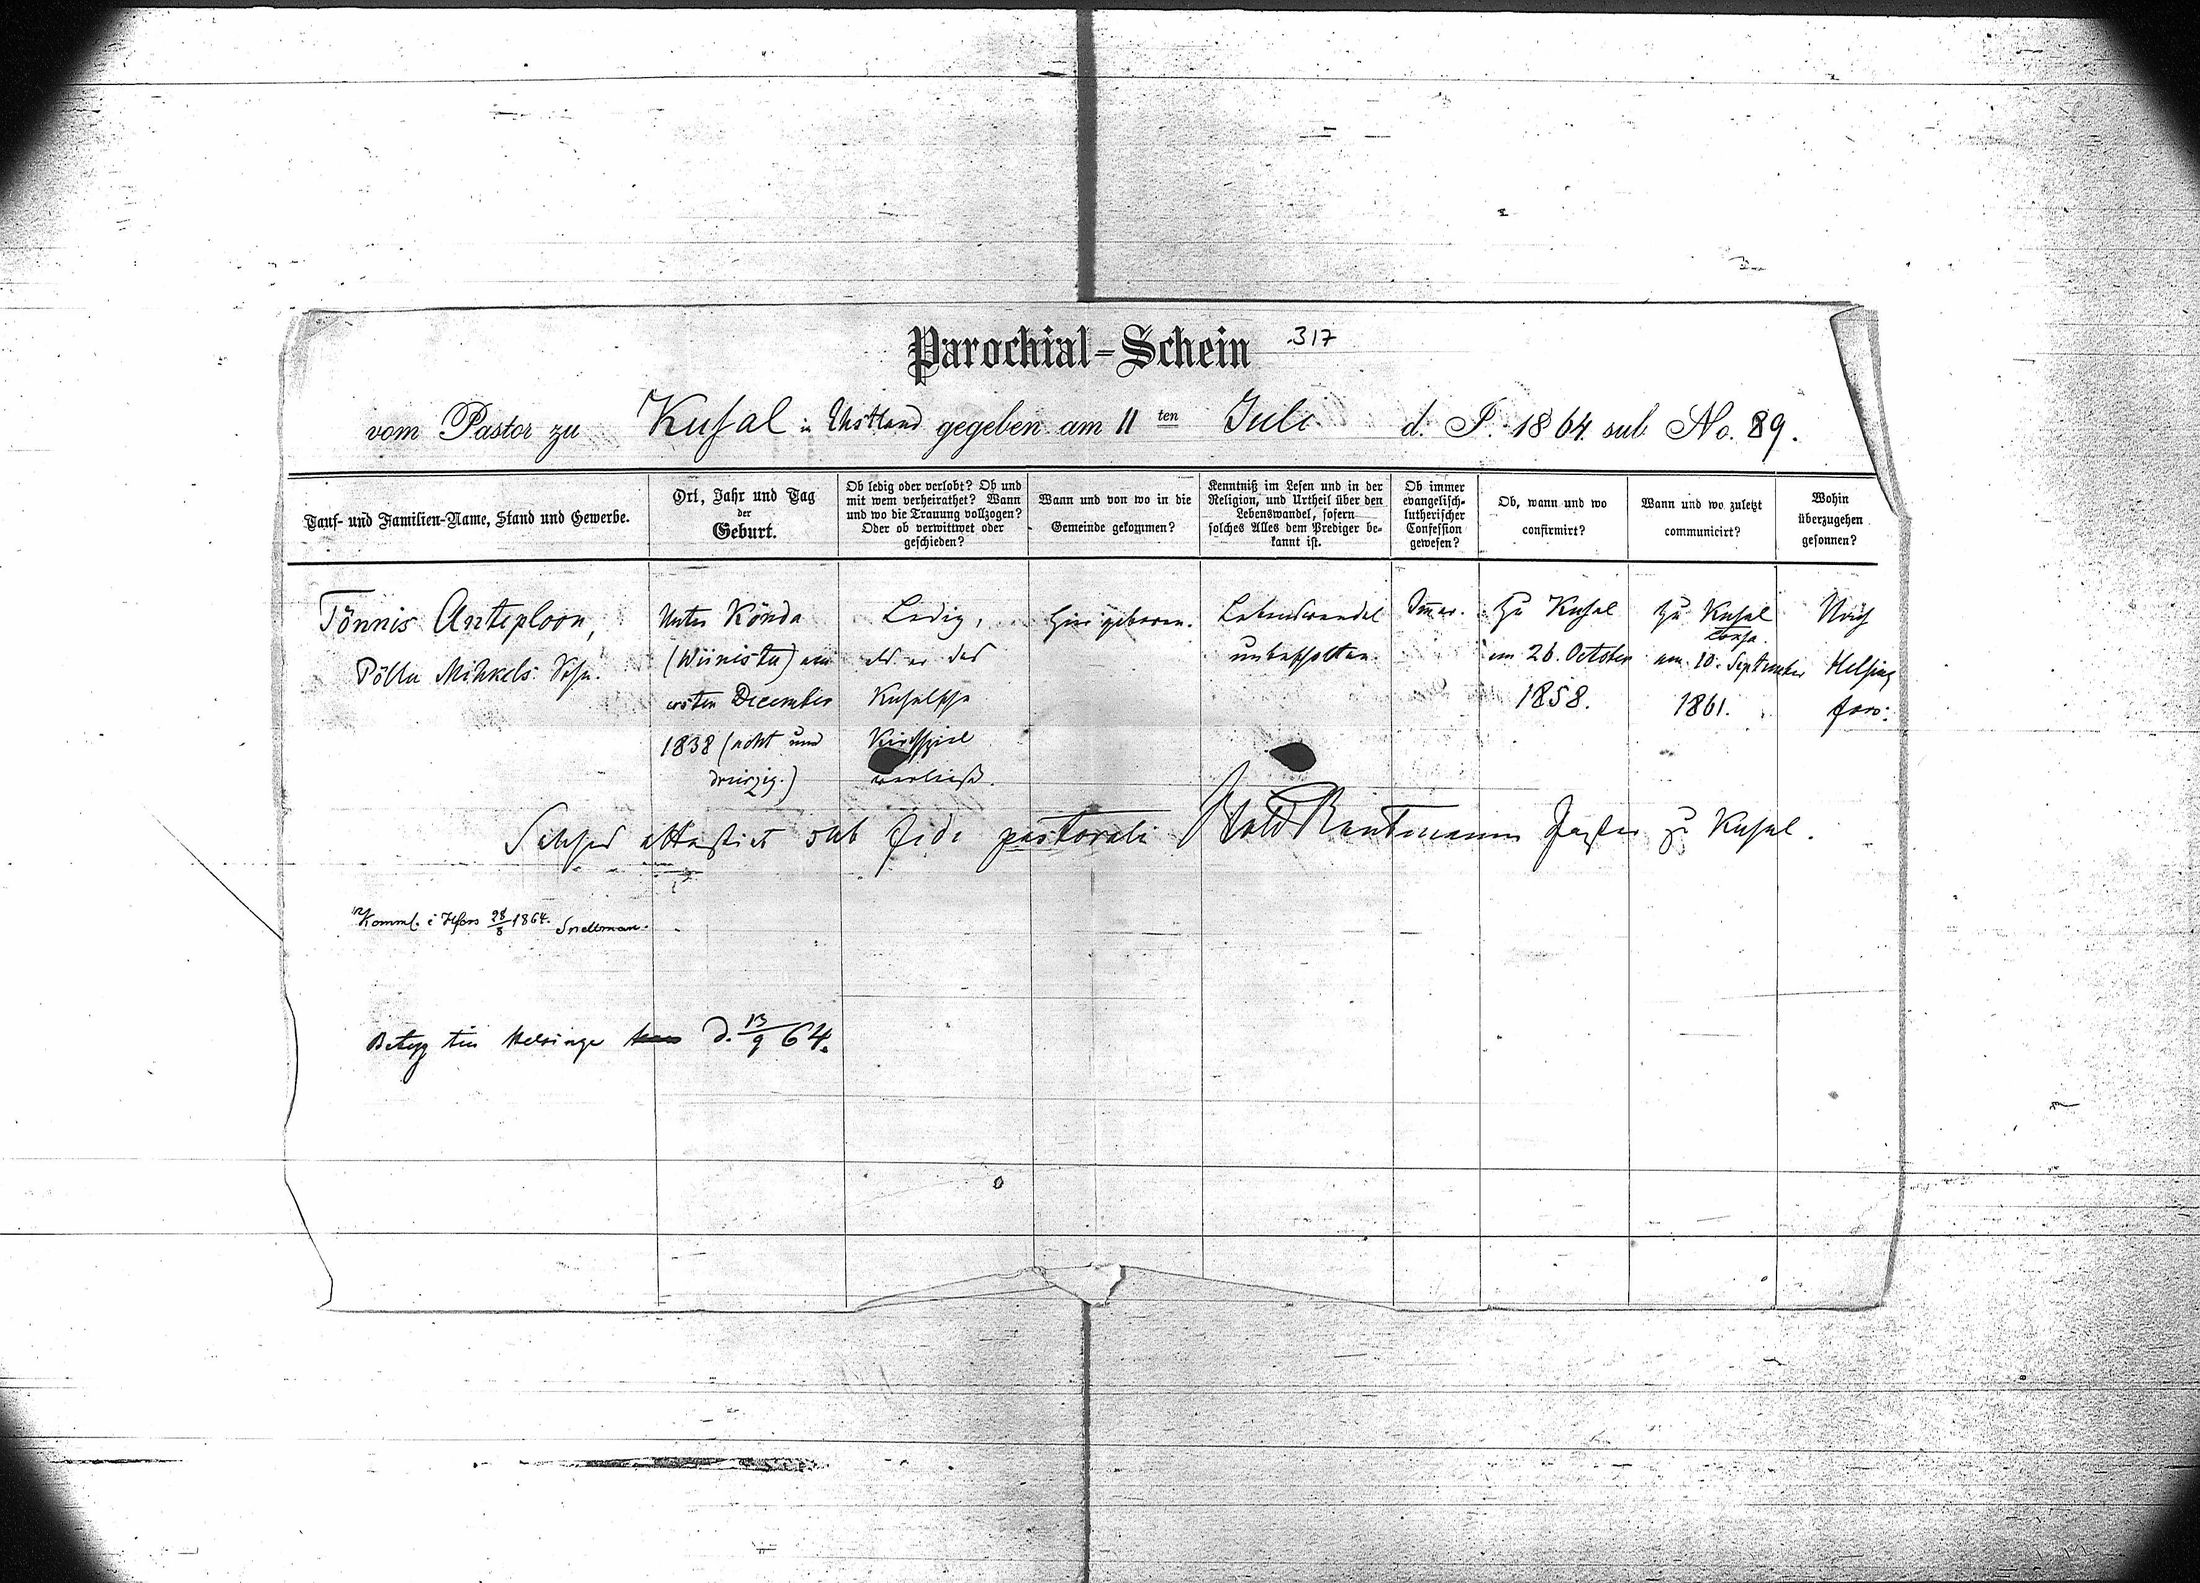 Parochial-Schein 317
vom Pastor zu Kusal in Ehstland gegeben am 11 ten Juli d. J. 1864. sub No. 89.
Tauf- und Familien-Name, Stand und Gewerbe.
Ort, Jahr und Tag
der
Geburt.
Ob ledig oder verlobt? Ob und
mit wem verheirathet? Wann
und wo die Trauung vollzogen?
Oder ob verwittwet oder
geschieden?
Wann und von wo in die
Gemeinde gekommen?
Kenntniß im Lesen und in der
Religion, und Urtheil über den
Lebenswandel, sofern
solches Alles dem Prediger be-
kannt ist.
Ob immer
evangelisch-
lutherischer
Confession
gewesen?
Ob, wann und wo
confirmirt?
Wann und wo zuletzt
communicirt?
Wohin
überzugehen
gesonnen?
Tönnis Anteploon,
Pöllu Mihkels Sohn.
Unter Könda
(Wiinistu) am
ersten December
1838 (acht und
dreißig.)
Ledig,
als er das
Kusalsche
Kirchspiel
verließ.
Hier geboren.
Lebenswandel
unbescholten.
Immer.
Zu Kusal
am 26. October
1858.
Zu Kusal
am 10. September
1861.
Nach
Helsing
fors:
Solches attestirt sub fide pastorali Wold Rentmann Pastor zu Kusal.
Komml. i Hfors 28/8 1864. Snellman.
Betyg till Helsinge d. 13/9 64.